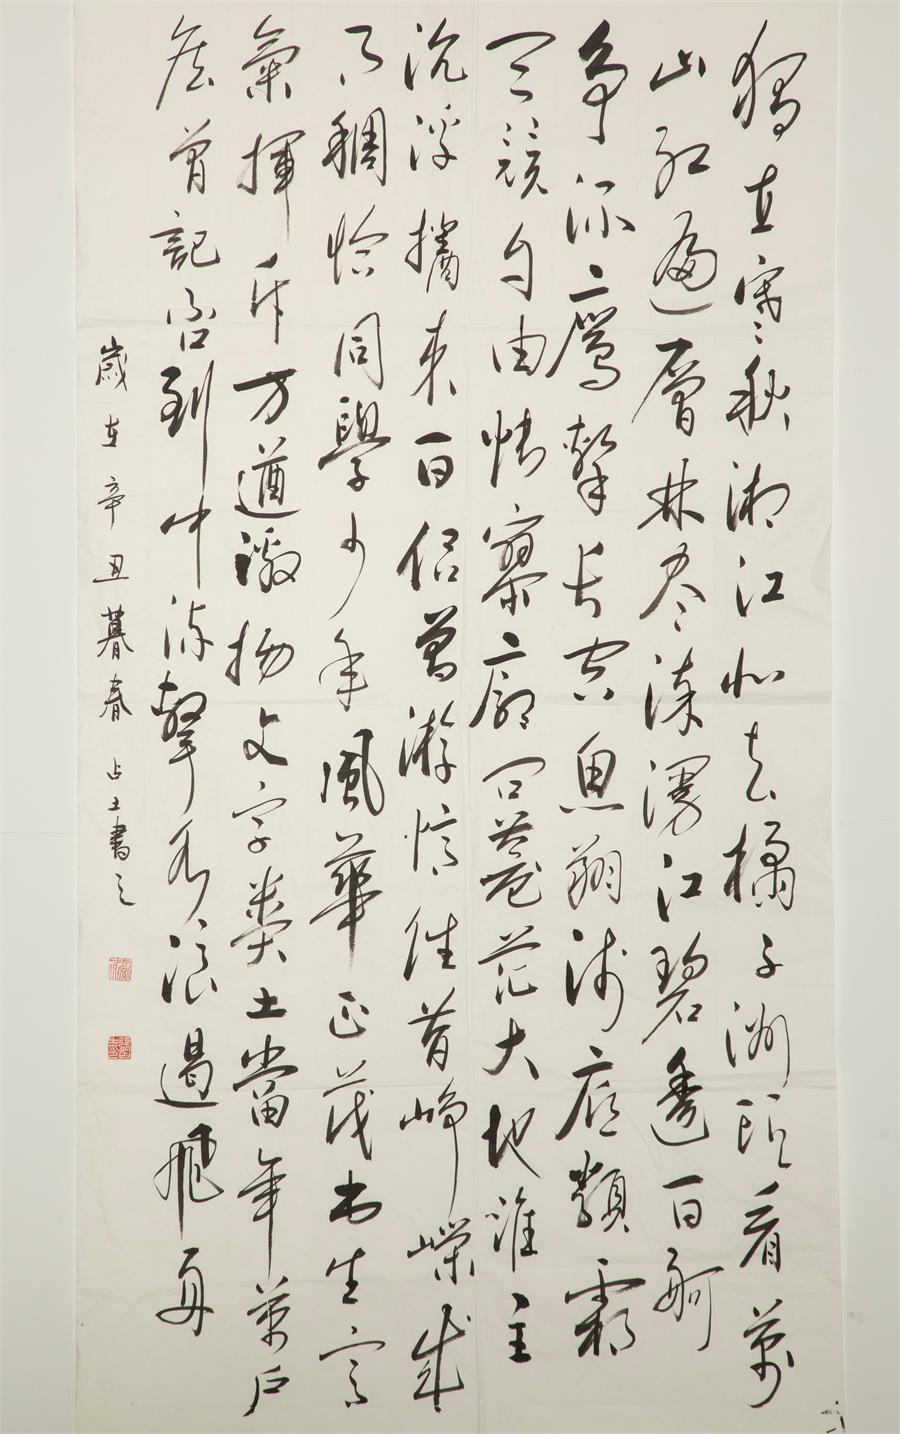 獨立寒秋湘江北去橘子洲頭看萬
山紅遍層林盡染漫江碧透百舸
争流鷹擊長空魚翔淺底類霜
天競自由悵寥廓問蒼茫大地誰主
沉浮攜來百侣曾游憶往昔崢嶸歲
月稠恰同學少年風華正茂書生意
氣揮斥方遒激揚文字糞土當年萬户
侯曾記否到中流擊水浪遏飛舟
歲在辛丑暮春占士書之